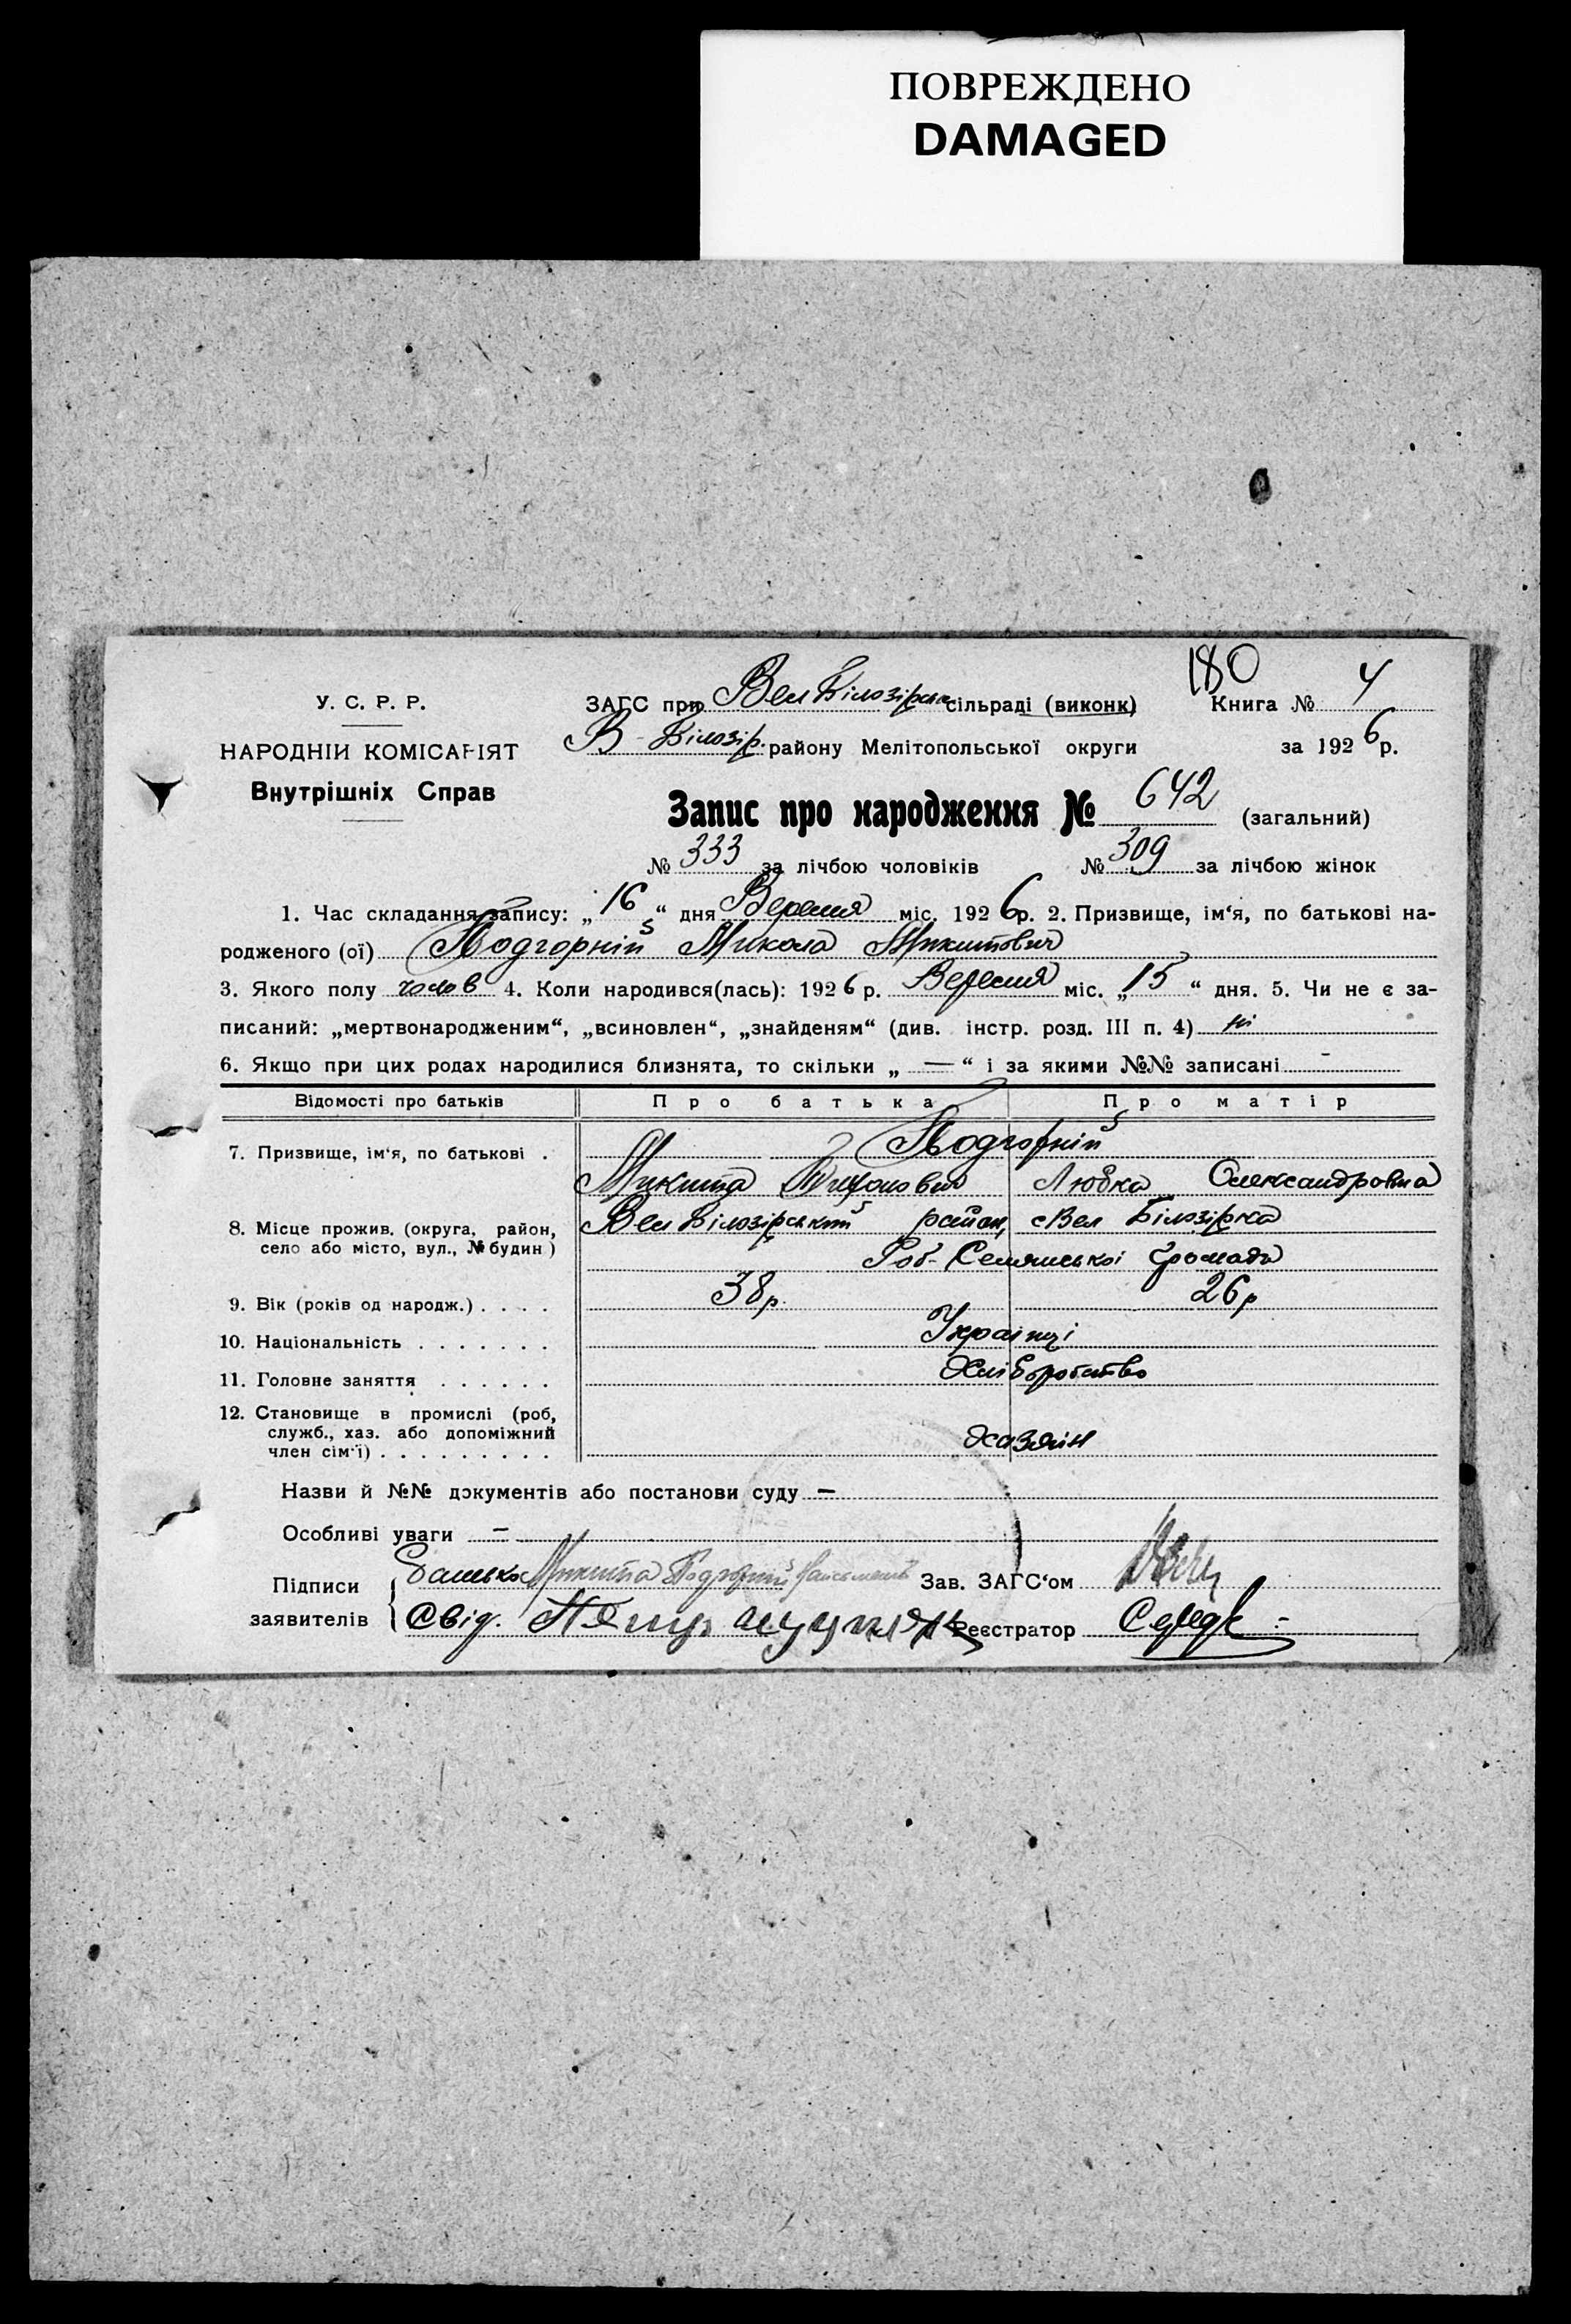 ПОВРЕЖДЕНО
DAMAGED
180
У. С. Р. Р.
ЗАГС при Вел Білозірськ сільраді (виконк) Книга № 4
НАРОДНІЙ КОМІСАРІЯТ
В-Білозір. району Мелітопольської округи за 1926 р.
Внутрішніх Справ
Запис про народження № 642 (загальний)
№ 333 за лічбою чоловіків № 309 за лічбою жінок
1. Час складання запису: „16“ дня Вересня міс. 1926 р. 2. Призвище, ім‘я, по батькові на-
родженого (ої) Подгорній Микола Микитович
3. Якого полу чолов 4. Коли народився(лась): 1926 р. Вересня міс. „15“ дня. 5. Чи не є за-
писаний: „мертвонародженим“, „всиновлен“, „знайденям“ (див. інстр. розд. III п. 4) ні
6. Якщо при цих родах народилися близнята, то скільки „—“ і за якими №№ записані -
Відомості про батьків Про батька Про матір
7. Призвище, ім‘я, по батькові . Подгорній
Микита Тихонович Любка Олександровна
8. Місце прожив. (округа, район, село або місто, вул., № будин) Вел Білозірський район, с Вел Білозірка
Роб-Селянської Громади
9. Вік (років од народж.) . . . . 38 р. 26 р
10. Національність . . . . . . . Українці
11. Головне заняття . . . . . . Хліборобство
12. Становище в промислі (роб,
служб., хаз. або допоміжний
член сім‘ї) . . . . . . . . . Хазяїн
Назви й №№ документів або постанови суду —
Особливі уваги —
Підписи Батько Микита Подгорній Зав. ЗАГС‘ом
заявителів Свід. Реєстратор